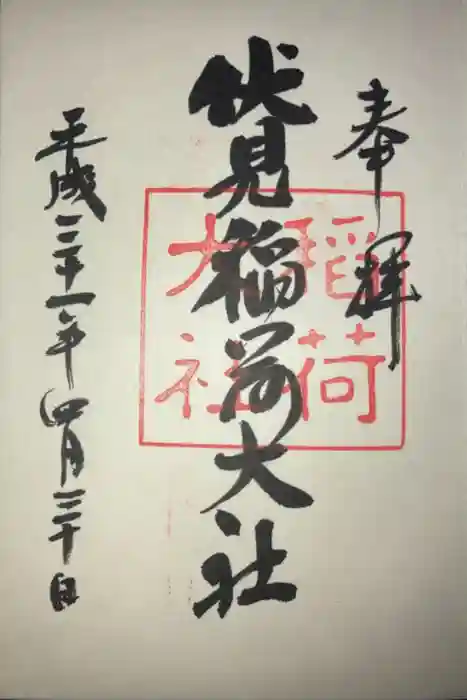 奉拝
伏見稲荷大社
稲荷
大社
平成三十一年四月三十日